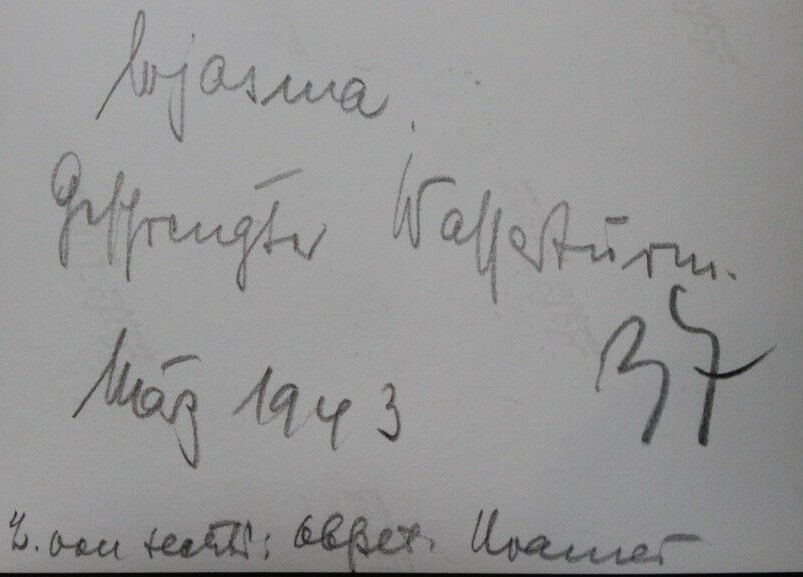 Wjasma.
Gesprengter Wasserturm.
März 1943
37
2. von rechts: Obgefr. Kramer